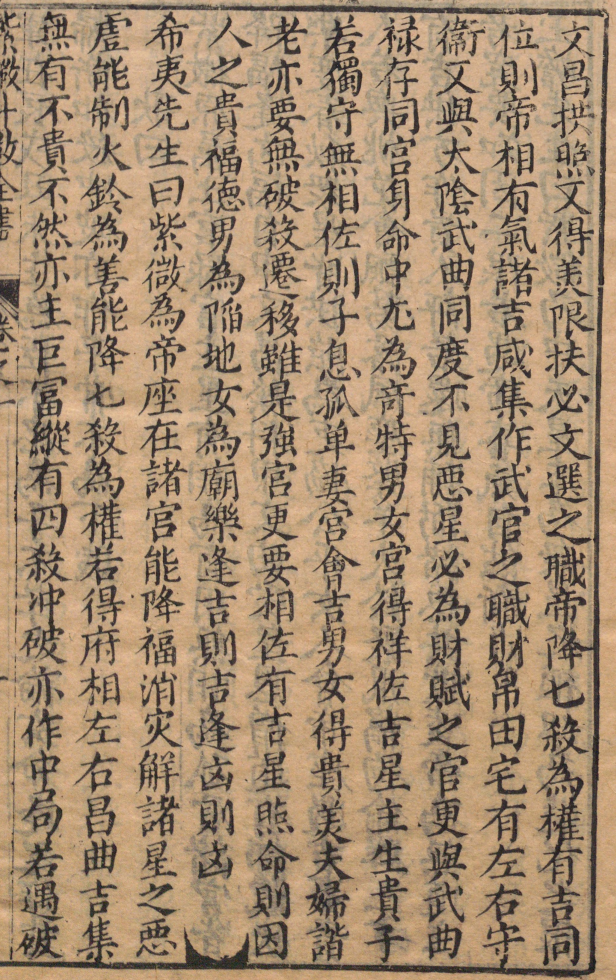 文昌拱照又得美限扶必文選之職帝降七殺為權有吉同
位則帝相有氣諸吉咸集作武官之職財帛田宅有左右守
衞又與太陰武曲同度不見惡星必為財賦之官更與武曲
禄存同宫身命中尤為竒特男女宫得祥佐吉星主生貴子
若獨守無相佐則子息孤单妻宫會吉男女得貴美夫婦諧
老亦要無破殺遷移雖是強宫更要相佐有吉星照命則因
人之貴福德男為陷地女為廟樂逢吉則吉逢凶則凶
希夷先生曰紫微為帝座在諸宫能降福消灾解諸星之惡
虚能制火鈴為善能降七殺為權若得府相左右昌曲吉集
無有不貴不然亦主巨富縱有四殺冲破亦作中局若遇破
紫微斗数全書 卷之一